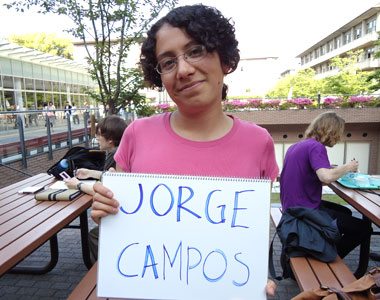 JORGE
CAMPOS